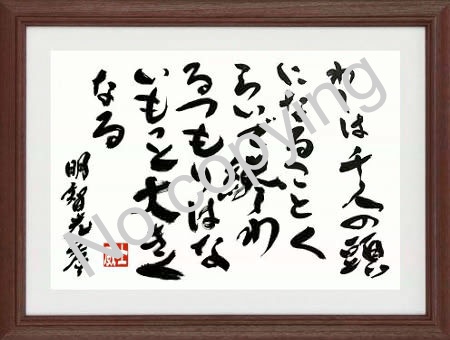 わしは千人の頭
になることく
らいで終わ
るつもりはな
いもっと大きく
なる
明智光秀
No copying